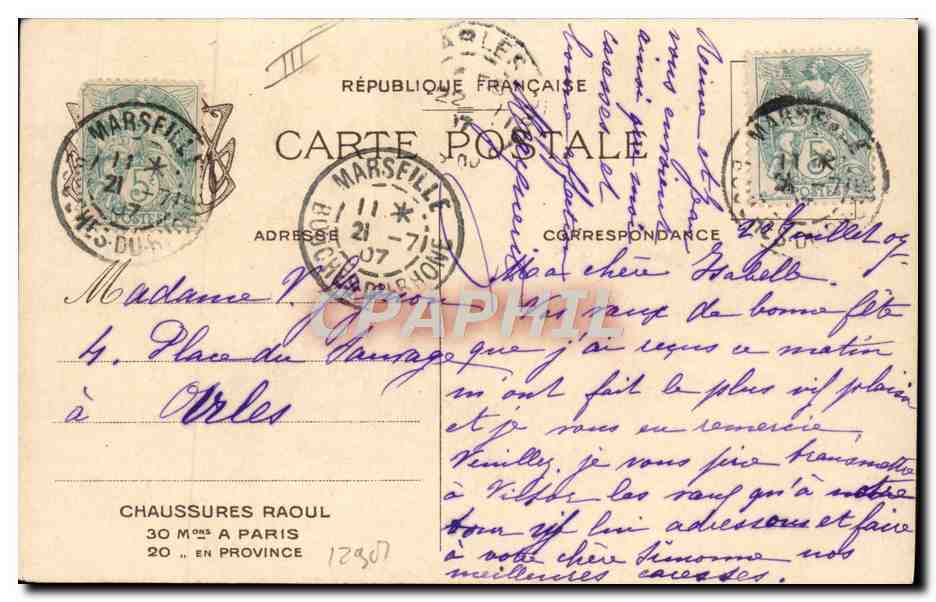 III
RÉPUBLIQUE FRANÇAISE
CARTE POSTALE
ADRESSE
CORRESPONDANCE
MARSEILLE
11 *
21 -7
07
BOUCHES-DU-RHONE
5
POSTES
MARSEILLE
11 *
21 -7
07
BOUCHES-DU-RHONE
MARSEILLE
11 *
5
POSTES
ARLES
22
Madame V.
4, Place du Sauvage
à Arles
CHAUSSURES RAOUL
30 Mons A PARIS
20 „ EN PROVINCE
12901
21 Juillet 07.
Ma chère Isabelle.
Vos vœux de bonne fête
que j'ai reçus ce matin
m'ont fait le plus vif plaisir
et je vous en remercie.
Veuillez, je vous prie transmettre
à Victor les vœux qu'à notre
tour lui adressons et faire
à votre chère Simonne nos
meilleures caresses.
Reine et Jean
vous envoient
ainsi que moi
caresses et
bonne affection
CPAPHIL